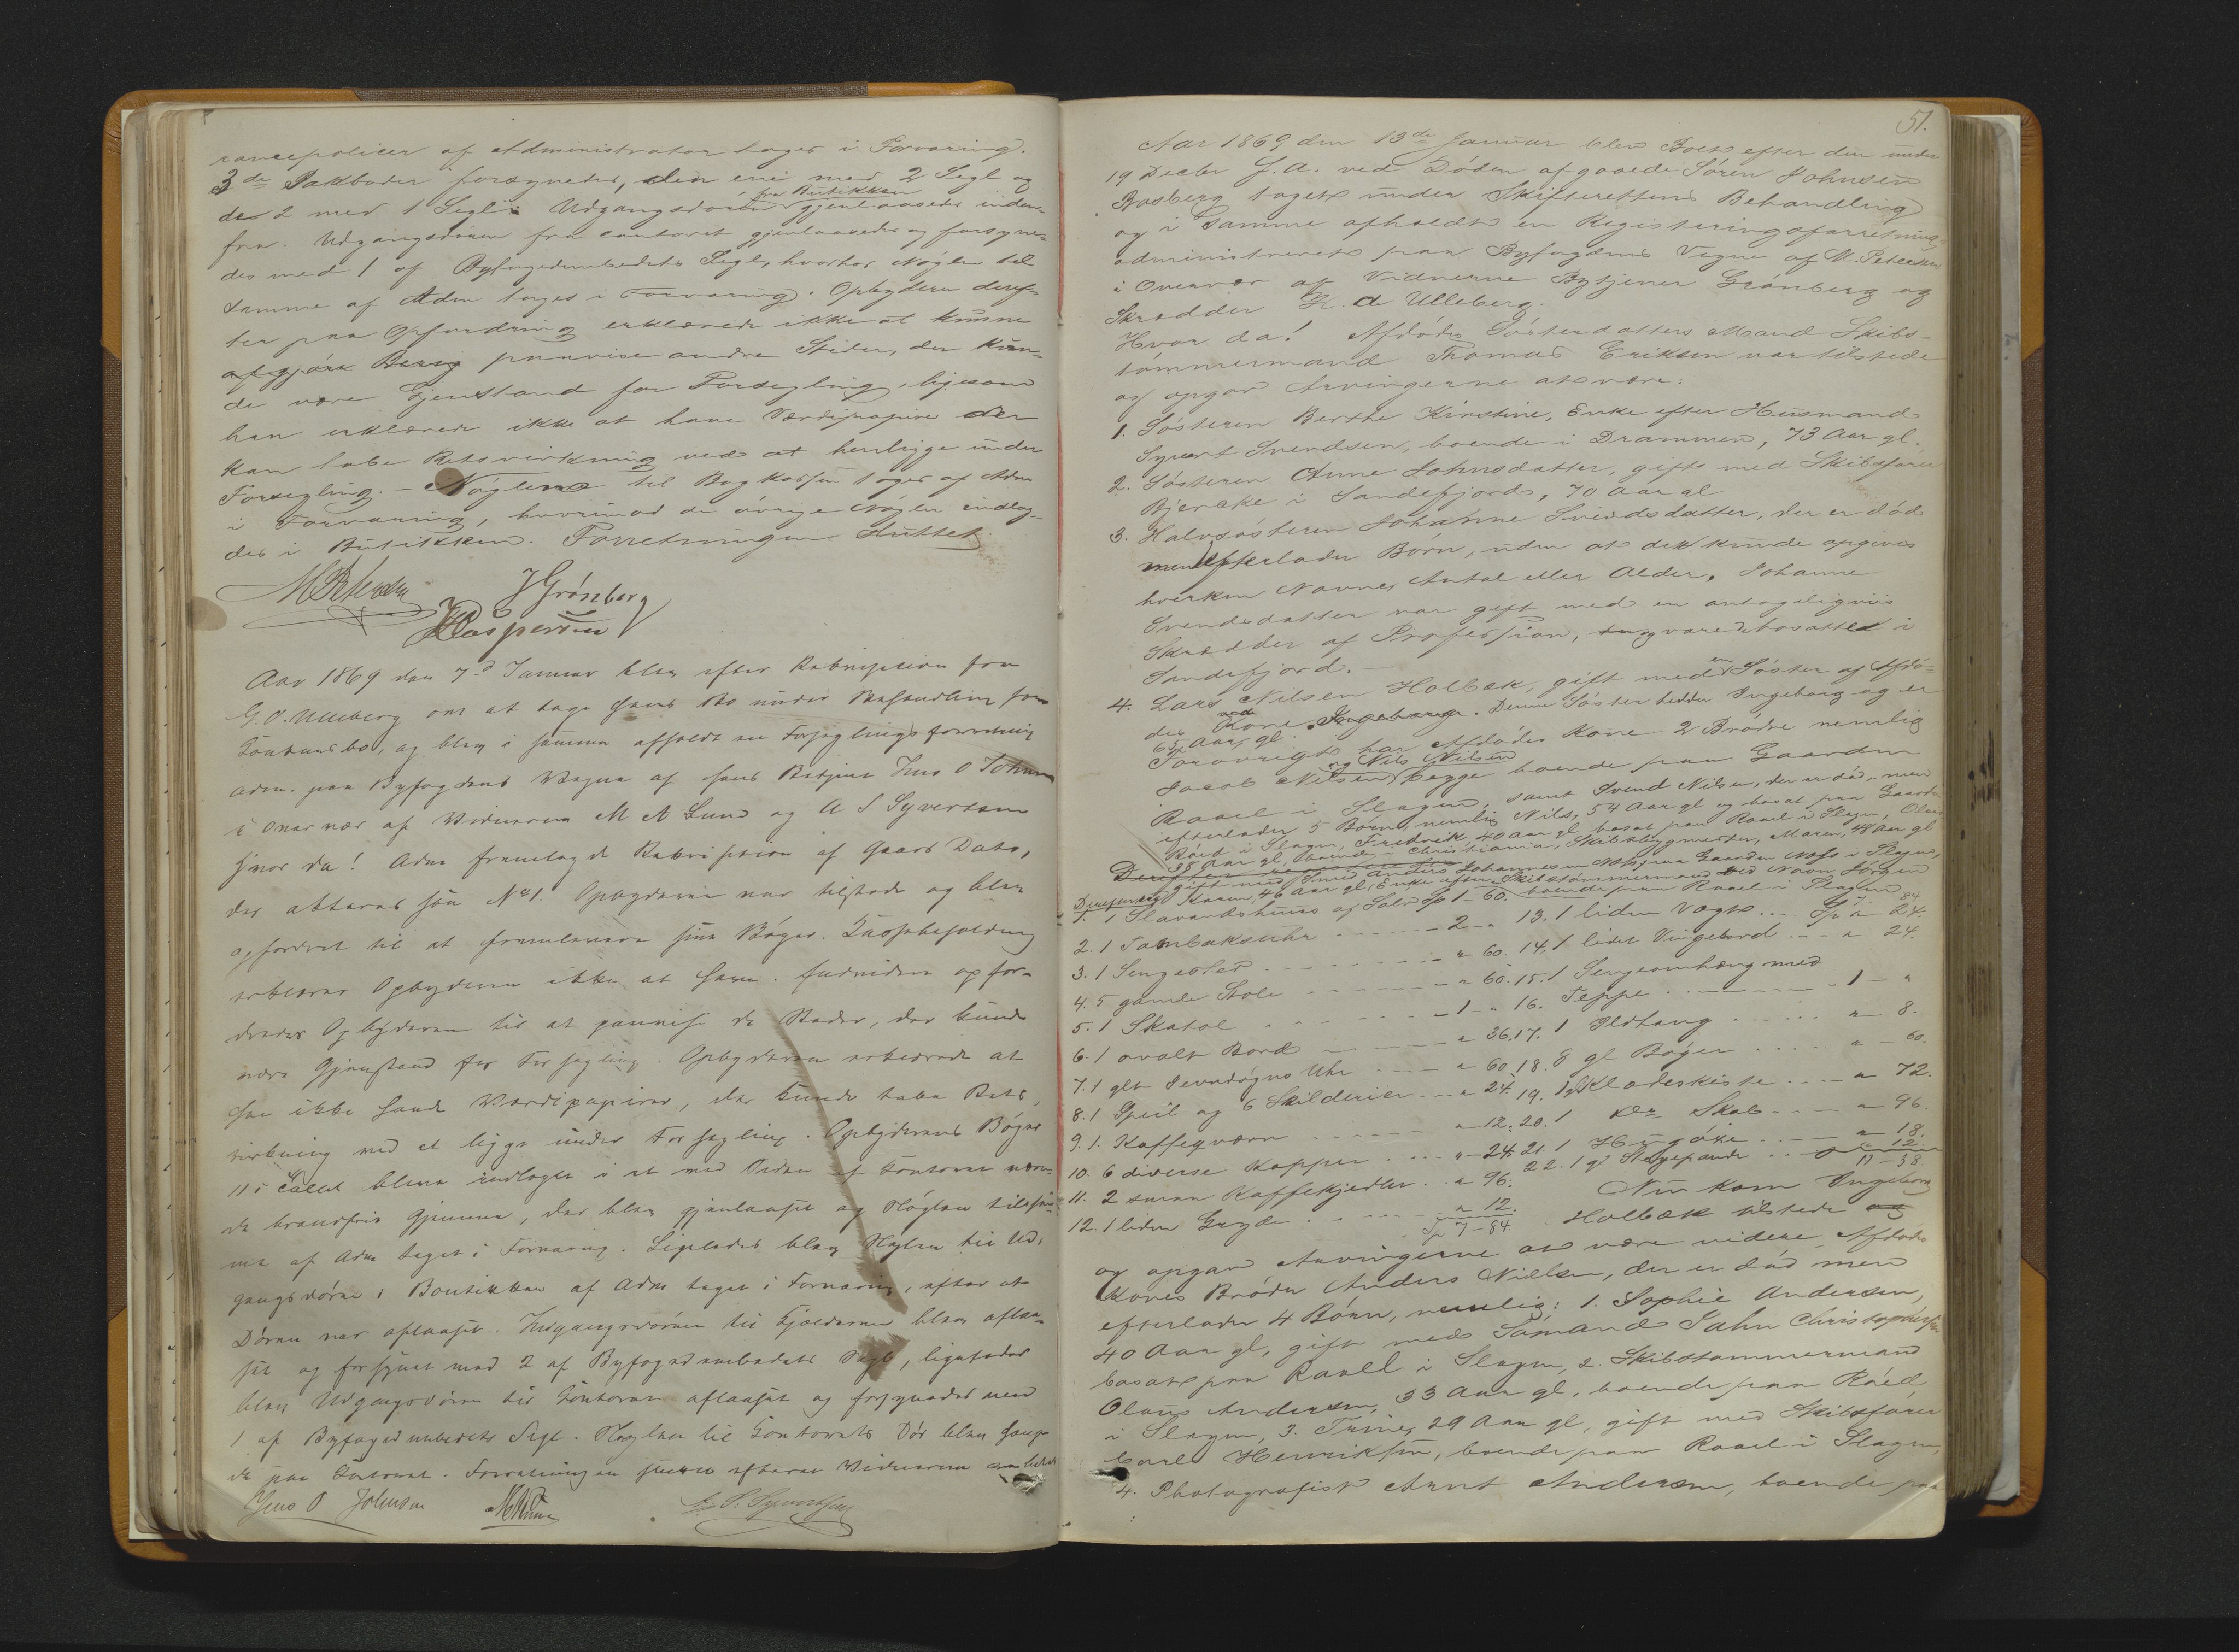 rancepolicer af Administrator toges i Forvaring.
3de Pakboder forsegnedes, den ene med 2 Segl og
de 2 med 1 Segl. Udgangsdøren fra Butikken gjenlaasedes inden-
fra. Udgangsdøren fra contoret gjenlaasedes og forsyne-
des med 1 af Byfogedembedets Segl, hvorhos Nøglen til
samme af Adm toges i Forvaring. Opbyderen deref-
ter paa Opfordring erklærede ikke at kunne
afgjøre Bevis paavise andre Steder, der kun-
de være Gjenstand for Forsegling, ligesom
han erklærede ikke at have Værdipapirer der
kan tabe Retsvirkning ved at henligge under
Forsegling. – Nøglene til Bog toges af Adm
i Forvaring, hvorimod de øvrige Nøgler indlag-
des i Butikken. Forretningen sluttet.
M Petersen J Grønberg
H Caspersen
Aar 1869 den 7d Januar blev efter Rekvisition fra
G. O. Ulleberg om at tage hans Bo under Behandling som
, og blev i samme afholdt en Forseglingsforretning
adm. paa Byfogdens Vegne af hans Betjent Jens O Johnsen
i Overvær af Vidnerne M A Lund og A S Syvertsen
Hvor da! Adm fremlagde Rekvisition af Gaars Dato,
der akteres som No 1. Opbyderen var tilstede og blev
opfordret til at fremlevere sine Bøger. Kassebeholdning
erklærer Opbyderen ikke at have. Endvidere opfor-
dredes Opbyderen til at paavise de Steder, der kunde
være Gjenstand for Forsegling. Opbyderen erklærede at
han ikke havde Værdipapirer, der kunde tabe Rets-
virkning ved at ligge under Forsegling. Opbyderens Bøger
11 i Tallet bleve indlagte i et ved Siden af Kontoret væren-
de brandfrit Gjemme, der blev gjenlaaset og Nøglen til sam-
me af Adm taget i Forvaring. Ligeledes blev Nøglen til Ud-
gangsdøren i Boutikken af Adm taget i Forvaring, efter at
Døren var aflaaset. Indgangsdøren til Kjælderen blev aflaa-
set og forsynet med 2 af Byfogedembedets Segl, ligeledes
blev Udgangsdøren til Kontoret aflaaset og forsynedes med
1 af Byfogedembedets Segl. Nøglen til Kontorets Dør blev
paa Kontoret. Forretningen sluttet efterat Vidnerne
Jens O Johnsen M A Lund A. S. Syvertsen
51.
Aar 1869 den 13de Januar blev Boet efter den under
19 Decbr f. A. ved Døden afgaaede Sören Johnsen
Basberg taget under Skifterettens Behandling
og i samme afholdt en Registreringsforretning
administreret paa Byfogdens Vegne af M. Petersen
i Overvær af Vidnerne Bytjener Grönberg og
Skrædder H. A Ulleberg.
Hvor da! Afdødes Søsterdatters Mand Skibs-
tömmermand Thomas Eriksen var tilstede
og opgav Arvingerne at være:
1. Søsteren Berthe Kirstine, Enke efter Husmand
Syvert Svendsen, boende i Drammen, 73 Aar gl.
2. Søsteren Anne Johnsdatter, gift med Skibsfører
Bjercke i Sandefjord, 70 Aar gl
3. Halvsøsteren Johanne Svendsdatter, der er död
men efterlader Børn, uden at der kunde opgives
hverken Navne, Antal eller Alder. Johanne
Svendsdatter var gift med en antageligviis
Skrædder af Profession, bosatte i
Sandefjord. –
4. Lars Nilsen Holbæk, gift med en Søster af Afdø-
des Kone Ingeborg. Denne Søster hedder Ingeborg og er
65 Aar gl.
Forøvrigt har Afdødes Kone 2 Brødre nemlig
Jacob Nilsen og Nils Nilsen begge boende paa Gaarden
Raael i Slagen, samt Svend Nilsen, der er död, men
efterlader 5 Børn, nemlig Nils, 54 Aar gl og bosat paa Gaarden
Röed i Slagen, Fredrik 40 Aar gl, bosat paa Raael i Slagen, Olaus
38 Aar gl, boende i Christiania, Skibsbygmester, Maren, 48 Aar gl
gift med Smed Anders Johannesen Næs paa Gaarden Næss i Slagen,
Karen, 46 Aar gl, Enke efter Skibstømmermand ved Navn Jørgen
boende paa Raael i Slagen
Derefter
1. 1 Slavandshuus af Sølv Sp 1 – 60.
2. 1 Tombaksuhr – 2 – "
3. 1 Sengested – " 60.
4. 5 gamle Stole – " 60.
5. 1 Skatol – 1 – "
6. 1 ovalt Bord " 36.
7. 1 glt Ur " 60
8. 1 Speil og 6 Skilderier " 24.
9. 1. Kaffeqværn " 12.
10. 6 diverse Kopper " – 24.
11. 2 smaa Kaffekjedler " 96.
12. 1 liden Gryde " 12.
Sp 7 – 84
7 – 84
13. 1 liden Vægt Sp " 24.
14. 1 lidet Vingebord " 24.
15. 1 Sengeomhæng med
16. Teppe – 1 – "
17. 1 Ildtang " 8.
18. 8 gl Bøger " – 60.
19. 1 gl Klædeskiste " 72.
20. 1 Do Skab " 96.
21. 1 Hugøxe " 18.
22. 1 gl Stegepande – 12.
11 – 38
Nu kom Ingeborg
Holbæk tilstede og
og opgav Arvingerne at være videre Afdødes
Kones Broder Anders Nielsen, der er död men
efterlader 4 Børn, nemlig: 1. Sophie Andersen,
40 Aar gl, gift med Sömand John Christophersen
bosat paa Raael i Slagen, 2. Skibstømmermand
Olaus Andersen, 33 Aar gl, boende paa Röed
i Slagen, 3. Trine, 29 Aar gl, gift med Skibsfører
Carl Henriksen, boende paa Raael i Slagen,
4. Photografist Arnt Andersen, boende paa